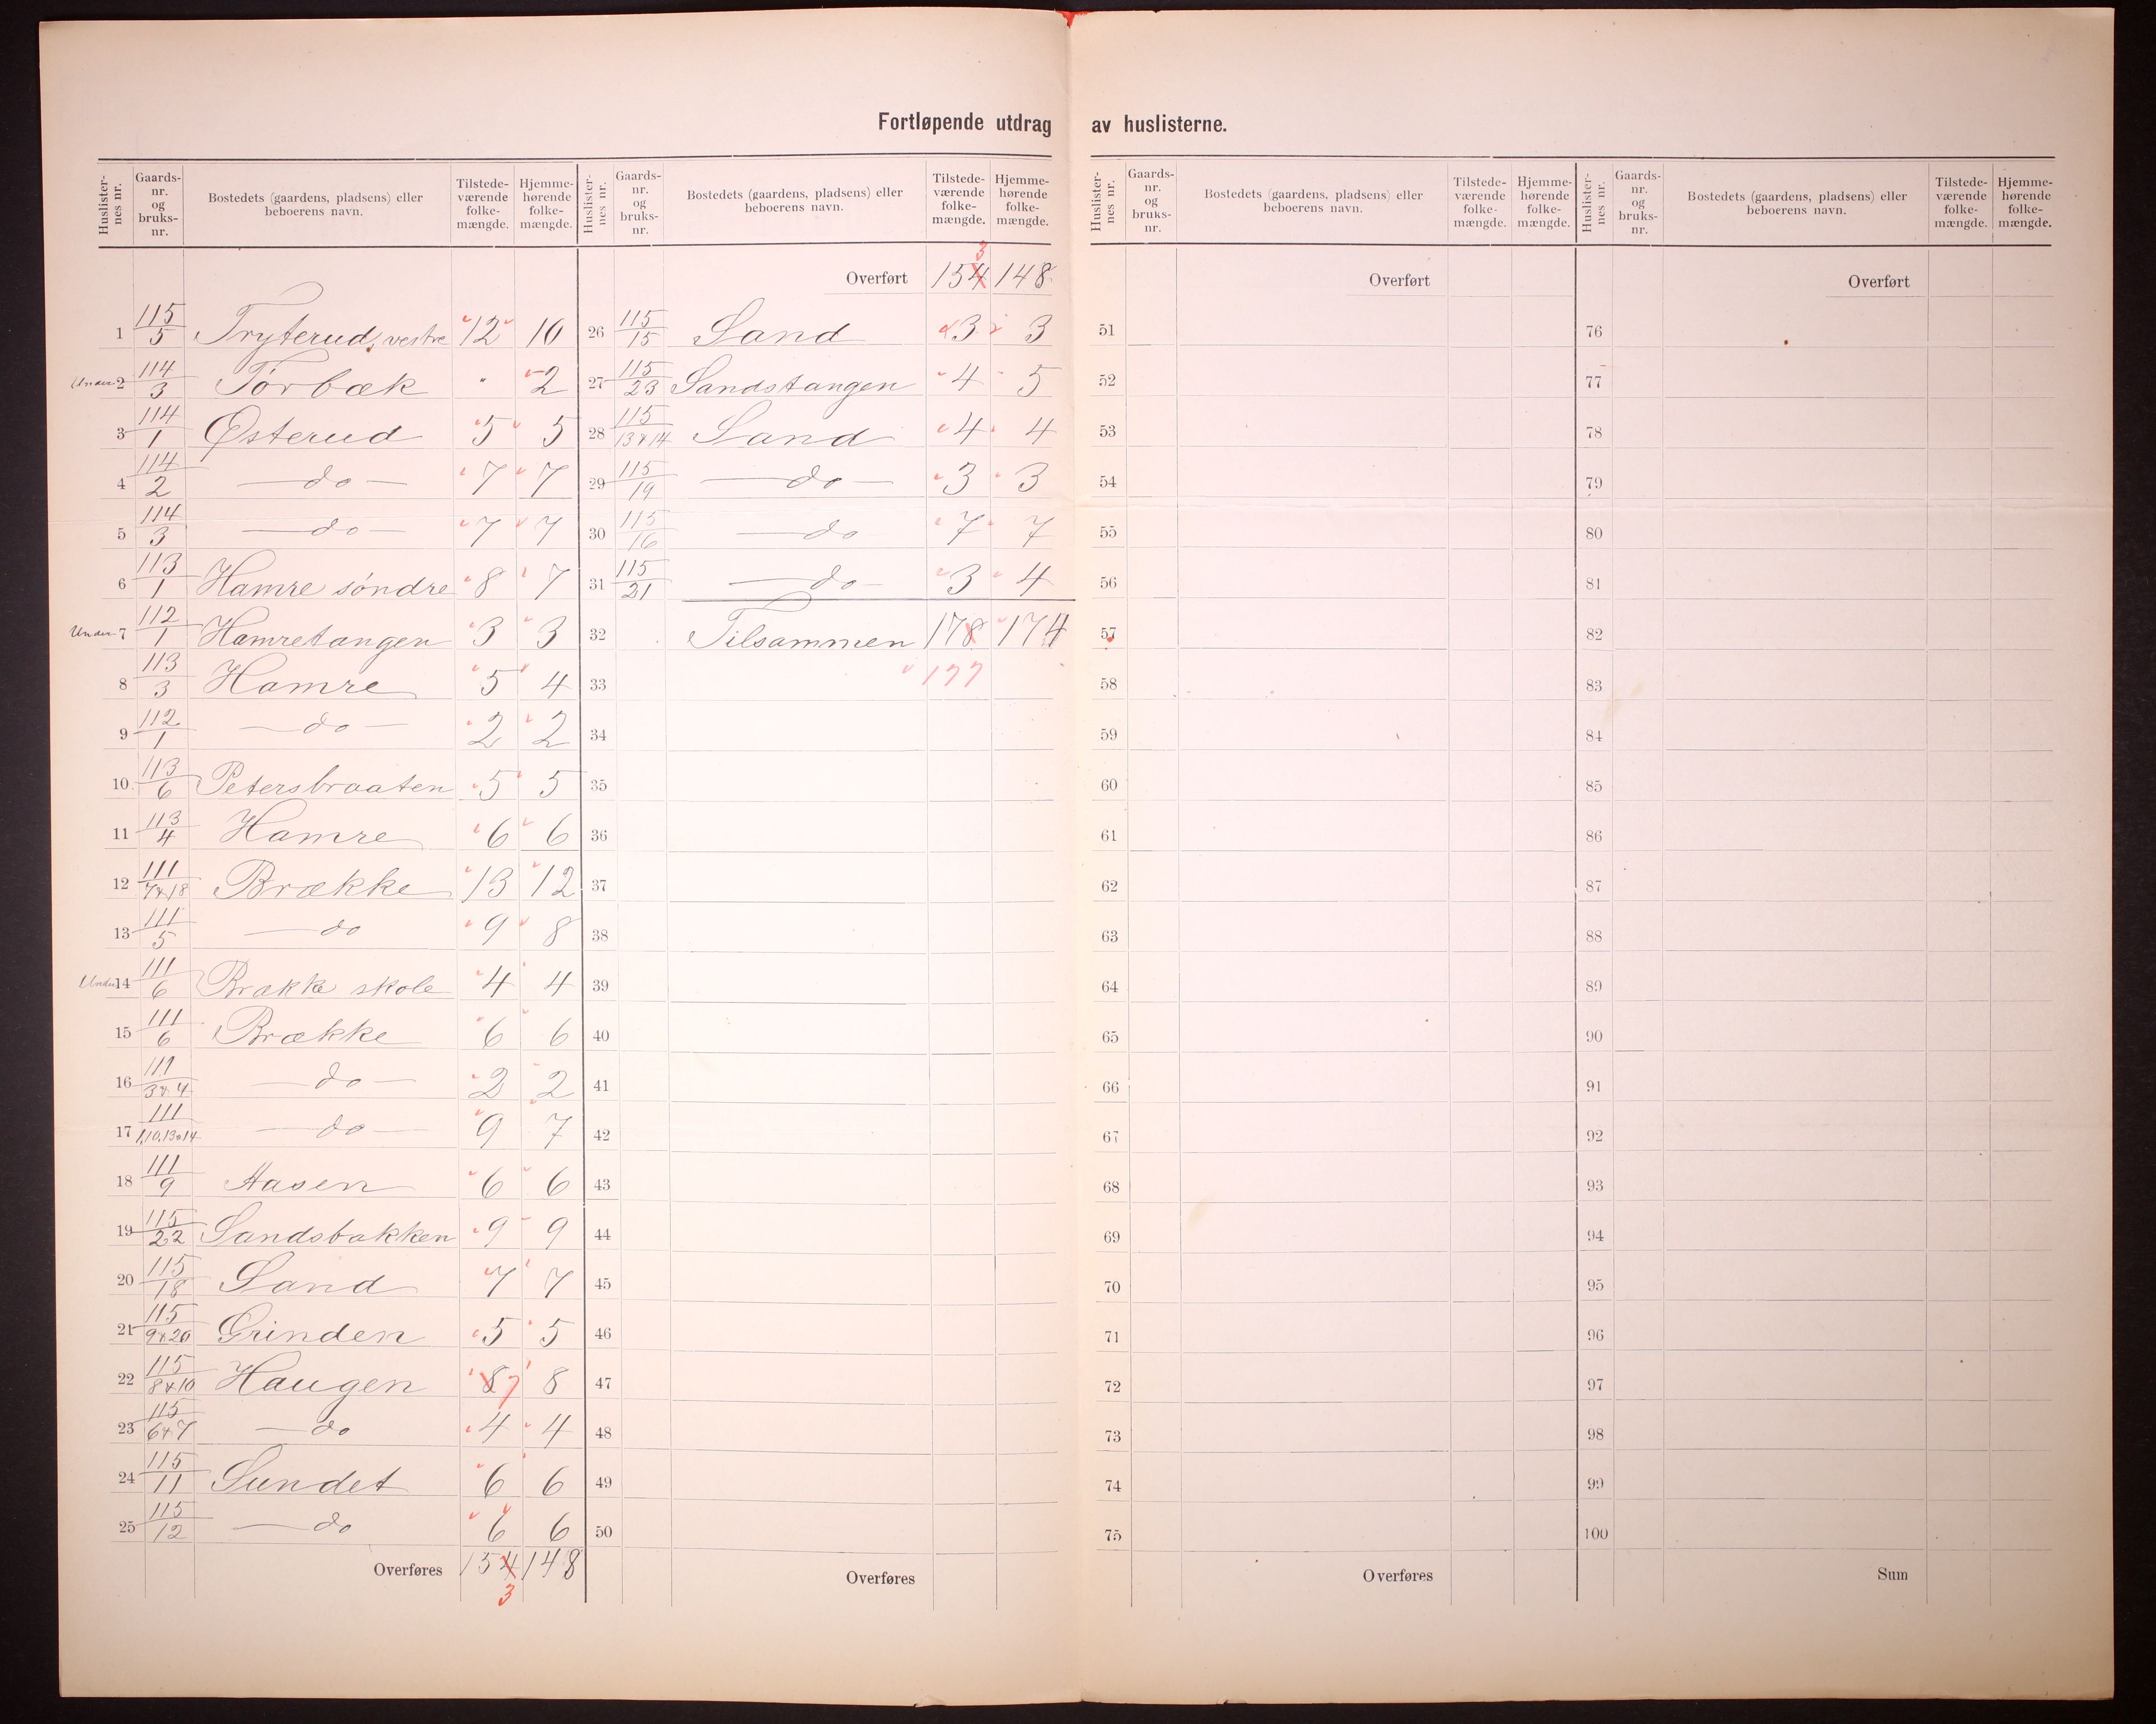 Fortløpende utdrag av huslisterne.
Huslister-nes nr. Gaards-nr. og bruks-nr. Bostedets (gaardens, pladsens) eller beboerens navn. Tilstede-værende folke-mængde. Hjemme-hørende folke-mængde.
1 115/5 Tryterud, vestre 12 10
Under 2 114/3 Torbæk " 2
3 114/1 Østerud 5 5
4 114/2 — do — 7 7
5 114/3 — do — 7 7
6 113/1 Hamre søndre 8 7
Under 7 112/1 Hamretangen 3 3
8 113/3 Hamre 5 4
9 112/1 — do — 2 2
10 113/6 Petersbraaten 5 5
11 113/4 Hamre 6 6
12 111/7&18 Brække 13 12
13 111/5 — do 9 8
Under 14 111/6 Brække skole 4 4
15 111/6 Brække 6 6
16 111/3&4 — do — 2 2
17 111/1,10,13&14 — do — 9 7
18 111/9 Aasen 6 6
19 115/22 Sandsbakken 9 9
20 115/18 Sand 7 7
21 115/9&20 Grinden 5 5
22 115/8&10 Haugen 8 7 8
23 115/6&7 — do 4 4
24 115/11 Sundet 6 6
25 115/12 — do 6 6
Overføres 154 148
3
Huslister-nes nr. Gaards-nr. og bruks-nr. Bostedets (gaardens, pladsens) eller beboerens navn. Tilstede-værende folke-mængde. Hjemme-hørende folke-mængde.
3
Overført 154 148
26 115/15 Sand 3 3
27 115/23 Sandstangen 4 5
28 115/13&14 Sand 4 4
29 115/19 — do — 3 3
30 115/16 — do 7 7
31 115/21 — do — 3 4
32 Tilsammen 178 174
33 177
34
35
36
37
38
39
40
41
42
43
44
45
46
47
48
49
50
Overføres
Huslister-nes nr. Gaards-nr. og bruks-nr. Bostedets (gaardens, pladsens) eller beboerens navn. Tilstede-værende folke-mængde. Hjemme-hørende folke-mængde.
Overført
51
52
53
54
55
56
57
58
59
60
61
62
63
64
65
66
67
68
69
70
71
72
73
74
75
Overføres
Huslister-nes nr. Gaards-nr. og bruks-nr. Bostedets (gaardens, pladsens) eller beboerens navn. Tilstede-værende folke-mængde. Hjemme-hørende folke-mængde.
Overført
76
77
78
79
80
81
82
83
84
85
86
87
88
89
90
91
92
93
94
95
96
97
98
99
100
Sum